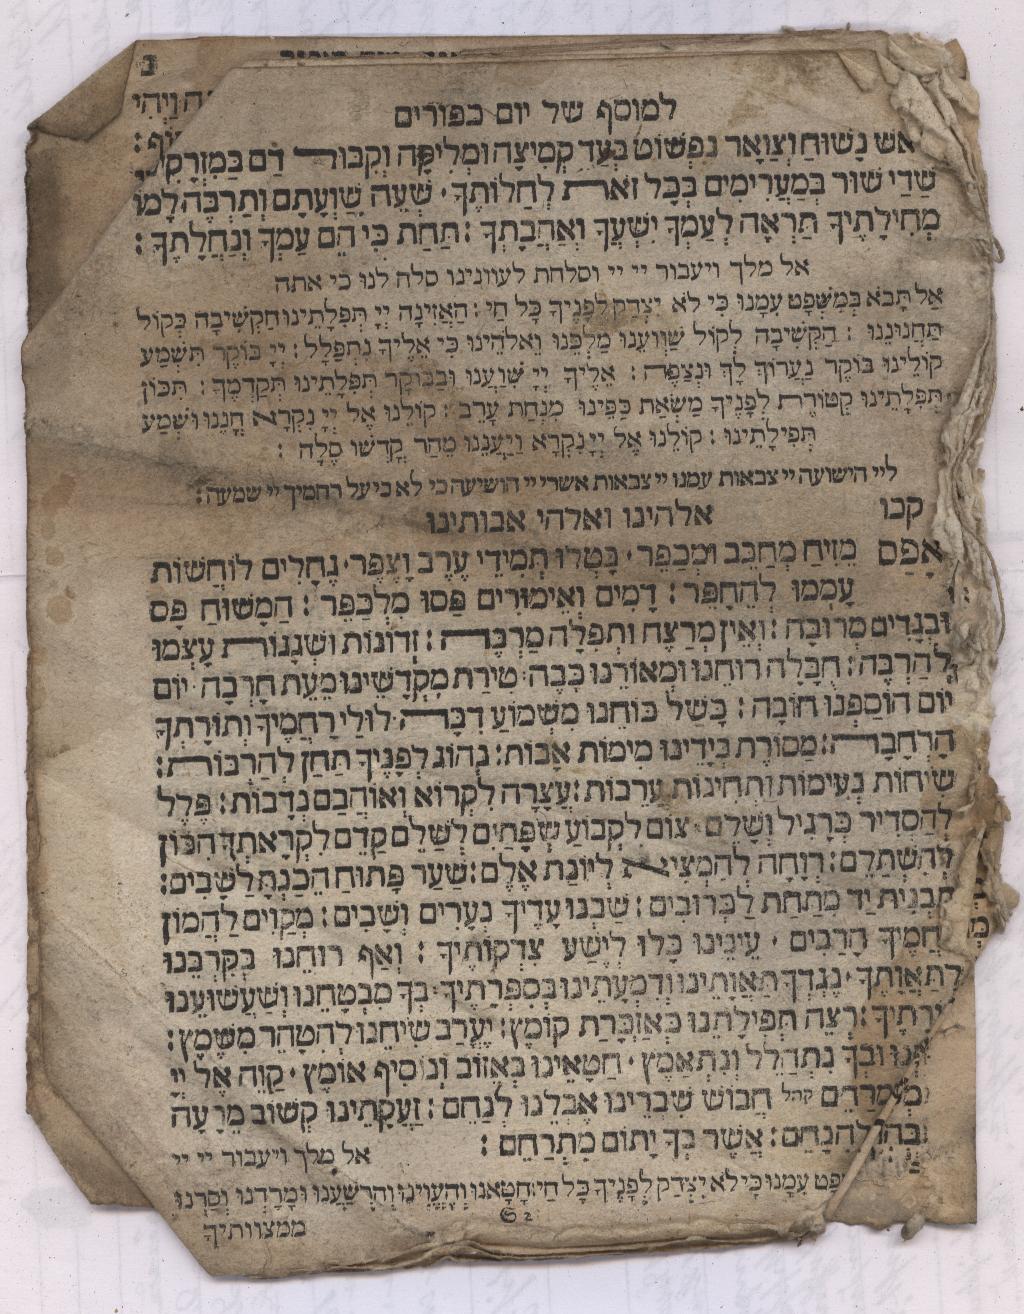 למוסף של יום כפורים
נָשׁוּחַ וְצַוָאר נִפְשׁוֹט בְּעַד קְמִיצָה וּמְלִיקָה וְקִבּוּר דָם בְּמִזְרָק
שָׂדַי שׁוּר בְּמַעֲרִימִים בְּכָל זֹאת לְחַלּוֹתֶךָ · שְׁעֵה שַׁוְעָתָם וְתַרְבֶּה לָמוֹ
מְחִילָתֶיךָ תַּרְאֶה לְעַמְּךָ יִשְׁעֲךָ וְאַהֲבָתֶךָ : תַּחַת כִּי הֵם עַמְּךָ וְנַחֲלָתֶךָ :
אל מלך ויעבור יי יי וסלחת לעווינינו סלה לנו כי אתה
אַל תָּבֹא בְּמִשְׁפָּט עִמָנוּ כִּי לֹא יִצְדַק לְפָנֶיךָ כָּל חַי : הַאֲזִינָה יְיָ תְּפִלָּתֵינוּ הַקְשִׁיבָה בְּקוֹל
תַּחֲנוּנֵנוּ : הַקְשִׁיבָה לְקוֹל שַׁוְועֵנוּ מַלְכֵּנוּ וֵאלֹהֵינוּ כִּי אֵלֶיךָ נִתְפַּלָל : יְיָ בּוֹקֶר תִּשְׁמַע
קוֹלֵינוּ בּוֹקֶר נַעֲרוֹךְ לָךְ וּנְצַפֶּה : אֵלֶיךָ יְיָ שִׁוַּעְנוּ וּבַבּוֹקֶר תְּפִלָּתֵינוּ תְּקַדְּמֶךָּ : תִּכּוֹן
תְּפִלָּתֵינוּ קְטוֹרֶת לְפָנֶיךָ מַשְׂאַת כַּפֵּינוּ מִנְחַת עָרֶב : קוֹלֵנוּ אֶל יְיָ נִקְרָא חָנֵנוּ וּשְׁמַע
תְּפִילָתֵינוּ : קוֹלֵנוּ אֶל יְיָ נִקְרָא וַיַעֲנֵנוּ מֵהַר קָדְשׁוֹ סֶלָה :
ליי הישועה יי צבאות עמנו יי צבאות אשרי יי הושיעה כי לא כי על רחמיך יי שמעה :
קכו אלהינו ואלהי אבותינו
אָפַס מֵזִיחַ מְחַבֵּב וּמְכַפֵּר · בָּטְלוּ תְּמִידֵי עֶרֶב וָצֶפֶר · גֶּחָלִים לוֹחֲשׁוֹת
עָמְמוּ לְהֵחָפֵר : דָמִים וְאֵימוּרִים פַּסוּ מִלְּכַפֵּר : הַמָּשׁוּחַ פָּס
וּבְגָדִים מְרוּבָּה : וְאֵין מְרַצֶּה וּתְפִלָּה מַרְבֶּה : זְדוֹנוֹת וּשְׁגָגוֹת עָצְמוּ
לְהַרְבֵּה : חֻבְּלָה רוּחֵנוּ וּמְאוֹרֵנוּ כָּבָה · טִירַת מִקְדָּשֵׁינוּ מֵעֵת חָרְבָה · יוֹם
יוֹם הוֹסַפְנוּ חוֹבָה : כָּשַׁל כּוֹחֵנוּ מִשְּׁמוֹעַ דִּבָּה · לוּלֵי רַחֲמֶיךָ וְתוֹרָתְךָ
הָרְחָבָה : מַסּוֹרֶת בְּיָדֵינוּ מִימוֹת אָבוֹת : נְהוֹג לְפָנֶיךָ תַּחַן לְהַרְבּוֹת :
שִׂיחוֹת נְעִימוֹת וּתְחִינוֹת עֲרֵבוֹת : עֲצָרָה לִקְרוֹא וְאוֹהֲבָם נְדָבוֹת : פֶּלֶל
לְהַסְדִּיר כְּרָגִיל וְשָׁלֵם · צוֹם לִקְבוֹעַ שְׂפָתַיִם לְשַׁלֵּם · קַדֵּם לִקְרָאתְךָ הִכּוֹן
לְהִשְׁתַּלֵּם : רְוָחָה לְהַמְצִיא לְיוֹנַת אֵלֶם : שַׁעַר פָּתוּחַ הֲכִנְתָּ לַשָּׁבִים :
תַּבְנִית יָד מִתַּחַת לַכְּרוּבִים : שַׁבְנוּ עָדֶיךָ נְעָרִים וְשָׁבִים : מְקַוִּים לַהֲמוֹן
רַחֲמֶיךָ הָרַבִּים · עֵינֵינוּ כָּלוּ לְיֵשַׁע צִדְקוֹתֶיךָ : וְאַף רוּחֵנוּ בְּקִרְבֵּנוּ
לְתַאֲוָתֶךָ · נֶגְדְּךָ תַּאֲוָתֵינוּ וְדִמְעָתֵינוּ בְּסִפְרָתֶיךָ · בְּךָ מִבְטָחֵנוּ וְשַׁעֲשׁוּעֵנוּ
רְצֵה תְּפִילָתֵנוּ כְּאַזְכָּרַת קוֹמֶץ : יֶעֱרַב שִׂיחֵנוּ לְהִטָּהֵר מִשֶּׁמֶץ :
וּבְךָ נִתְהַלֵּל וְנִתְאַמֵּץ · חַטְּאֵינוּ בְּאֵזוֹב וְנוֹסִיף אוֹמֶץ · קַוֵּה אֶל יְיָ
קהל חֲבוֹשׁ שִׁבְרֵינוּ אֶבְלֵנוּ לְנַחֵם : זַעֲקָתֵינוּ קְשׁוֹב מֵרָעָה
לְהִנָּחֵם : אֲשֶׁר בְּךָ יָתוֹם מִתְרַחֵם :
אל מלך ויעבור יי יי
עִמָנוּ כִּי לֹא יִצְדַק לְפָנֶיךָ כָּל חַי : חָטָאנוּ וְהֶעֱוִינוּ וְהִרְשַׁעְנוּ וּמָרַדְנוּ וְסַרְנוּ
ממצוותיך